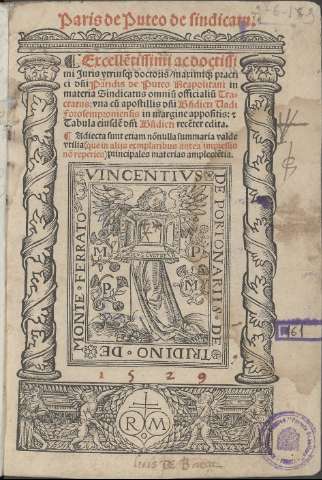 Paris de Puteo de sindicatu.
¶ Excellētissimi ac doctissi
mi Juris vtriusq; doctoris/maximiq; practi
ci dn̄i Paridis de Puteo Neapolitani in
materia Sindicatus omniū officialiū Tra-
ctatus: vna cū apostillis dn̄i Bn̄dicti Vadi
Forosemproniensis in margine appositis: ⁊
Tabula eiusdē dn̄i Bn̄dicti recēter edita.
¶ Adiecta sunt etiam nōnulla summaria valde
vtilia (que in alijs exemplaribus antea impressis
nō reperies) principales materias amplectētia.
VINCENTIVS
DE PORTONARIIS DE
TRIDINO DE
MONTE FERRATO
M P
P M
1 5 2 9
R M